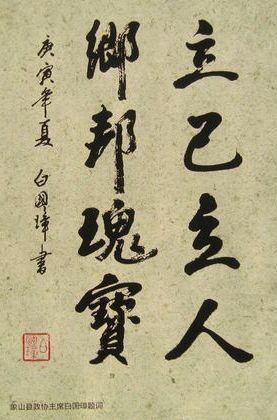 立己立人
鄉邦瑰寶
庚寅年夏 白國璋書
象山县政协主席白国璋题词